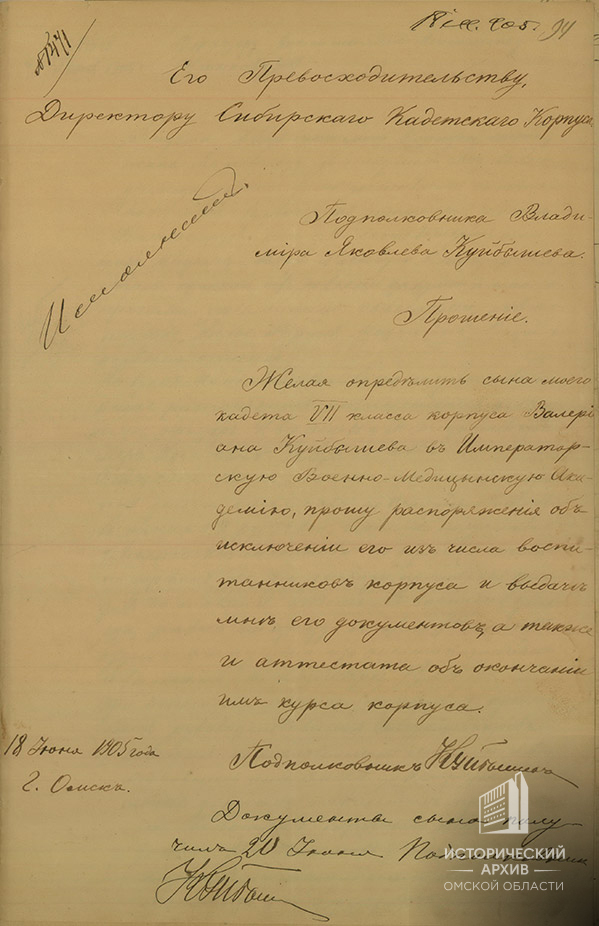 №1471
94
Его Превосходительству,
Директору Сибирскаго Кадетскаго Корпуса
Подполковника Влади-
міра Яковлева Куйбышева.
Прошеніе.
Желая опредѣлить сына моего
кадета VII класса корпуса Валері
ана Куйбышева въ Император-
скую Военно-Медицинскую Ака-
демію, прошу распоряженія объ
исключеніи его изъ числа воспи-
танниковъ корпуса и выдачѣ
мнѣ его документовъ, а также
и аттестата объ окончаніи
имъ курса корпуса.
18 Іюня 1905 года
г. Омскъ.
Подполковникъ Куйбышевъ
Документы сына полу
чилъ 20 Іюня
ИСТОРИЧЕСКИЙ
АРХИВ
ОМСКОЙ ОБЛАСТИ